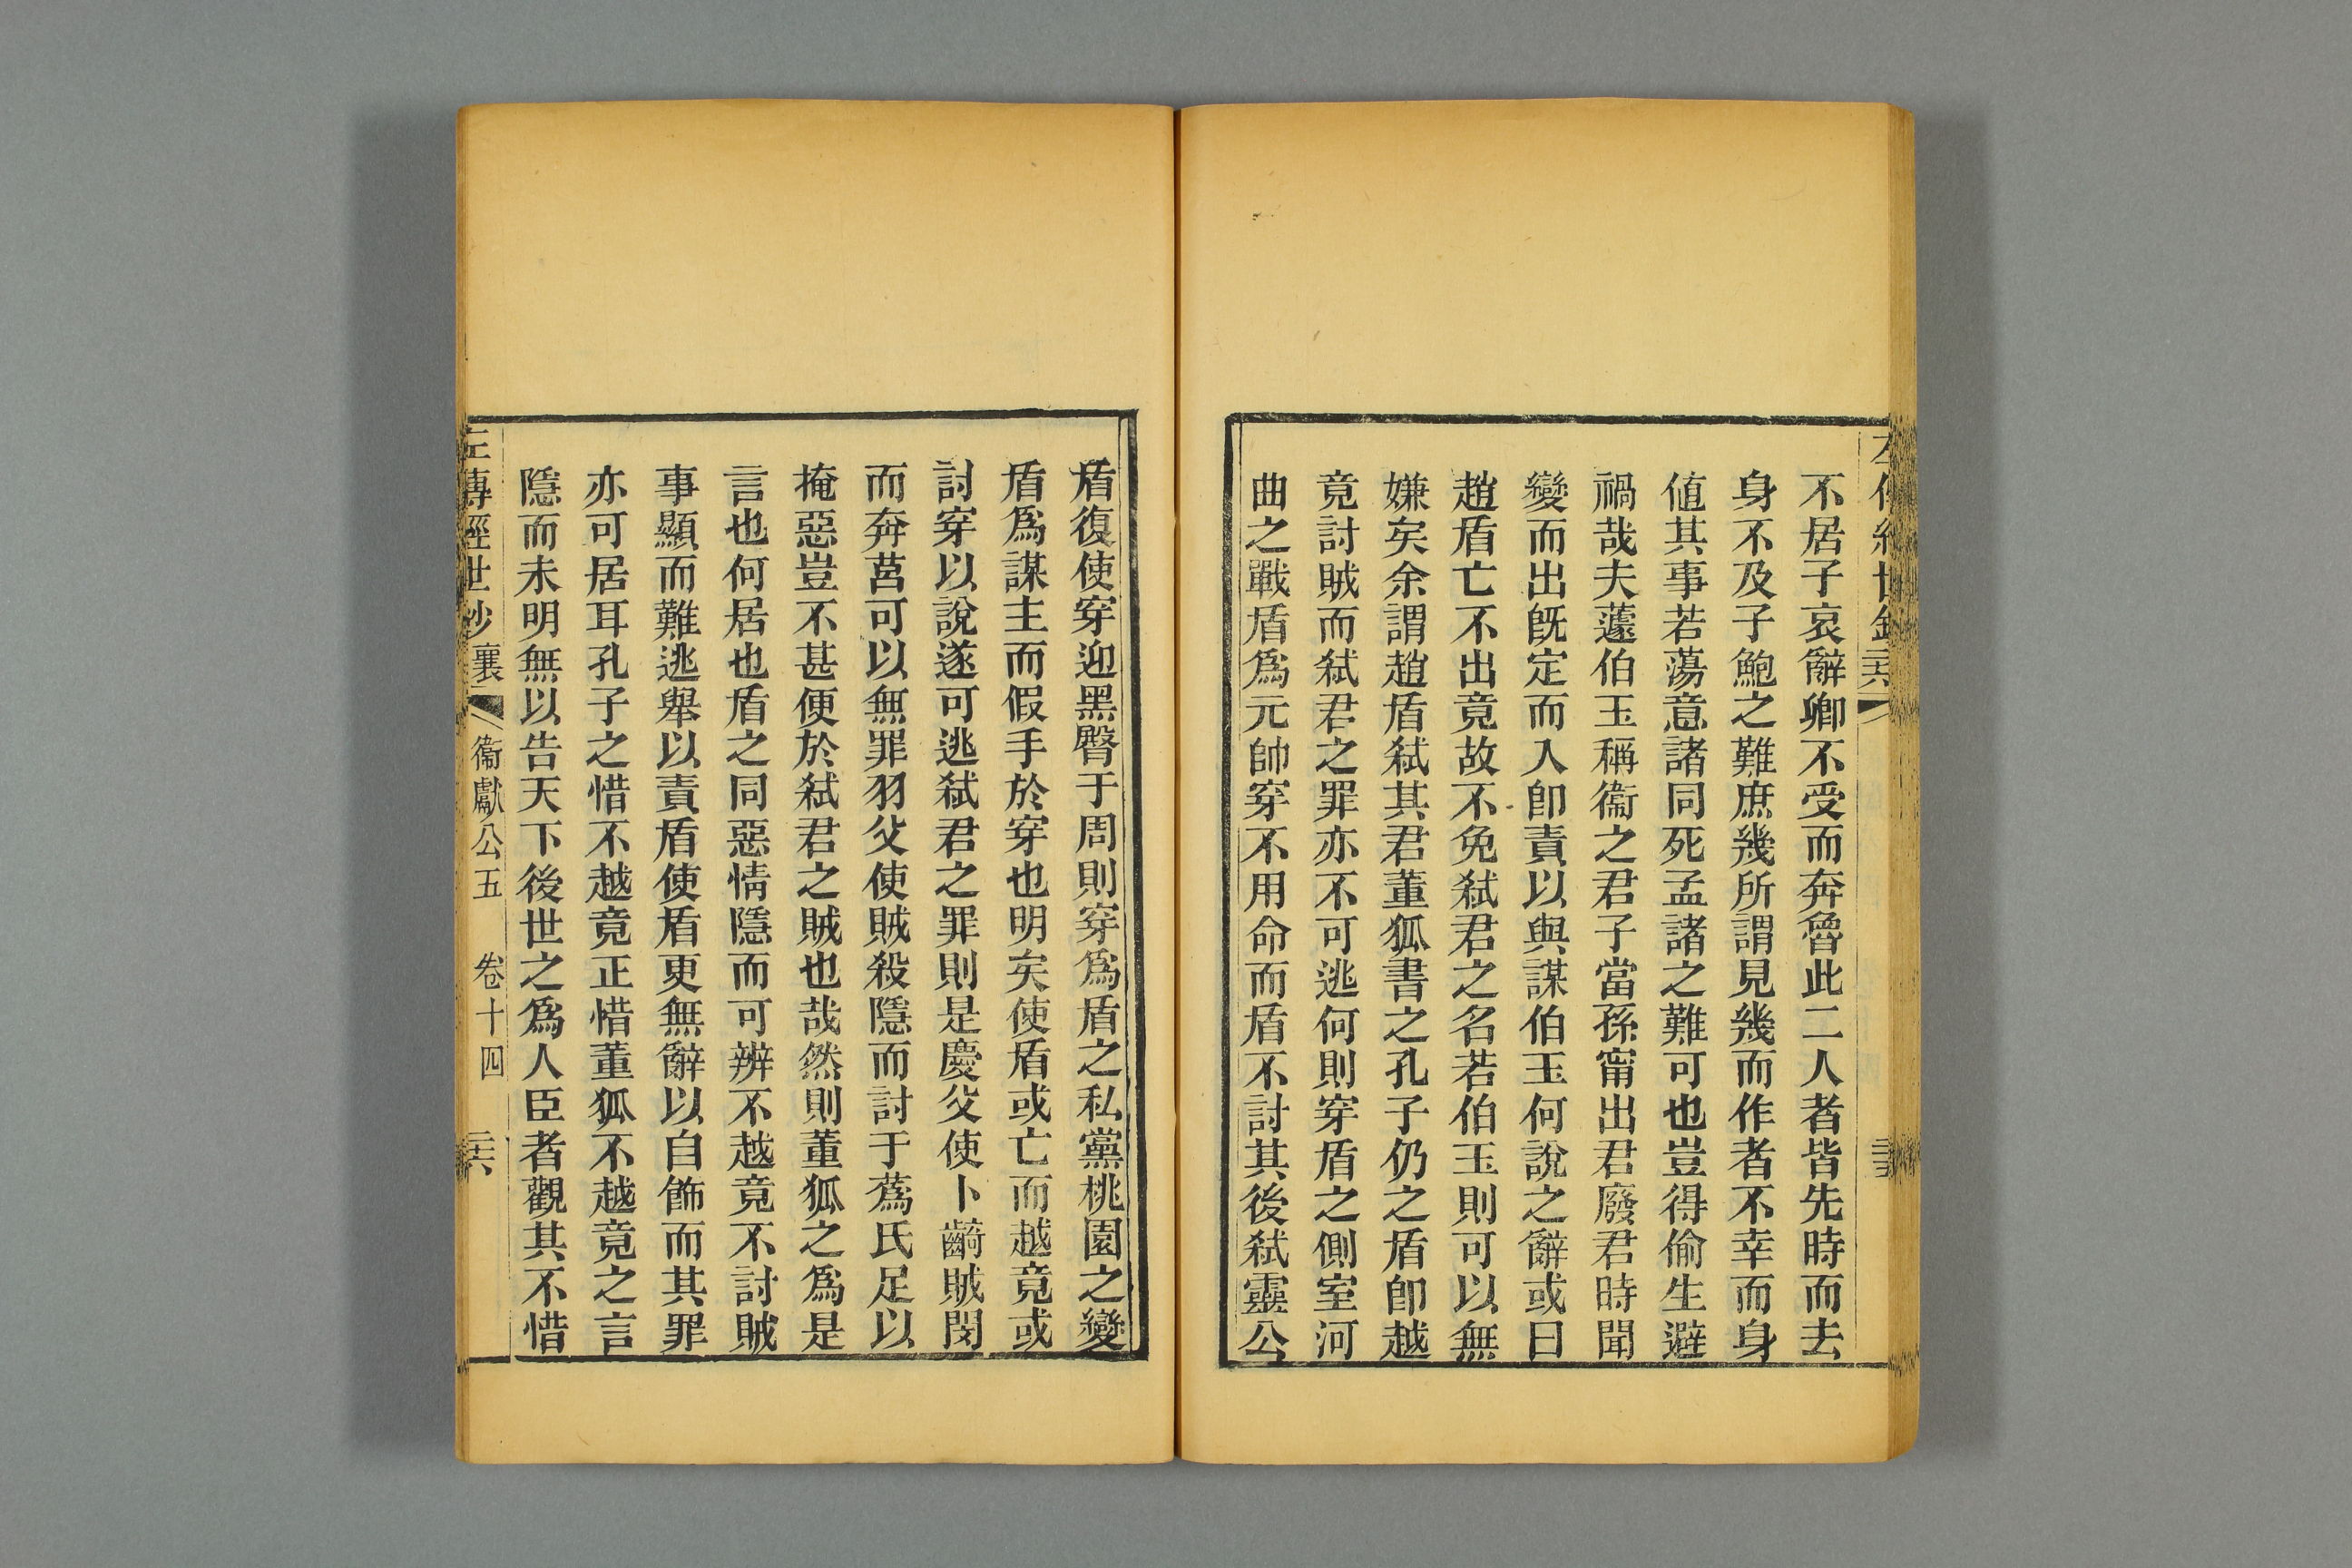 不居子哀辭卿不受而奔魯此二人者皆先時而去
身不及子鮑之難庶幾所謂見幾而作者不幸而身
値其事若蕩意諸同死孟諸之難可也豈得偷生避
禍哉夫蘧伯玉稱衞之君子當孫甯出君廢君時聞
變而出旣定而入卽責以與謀伯玉何說之辭或曰
趙盾亡不出竟故不免弑君之名若伯玉則可以無
嫌矣余謂趙盾弑其君董狐書之孔子仍之盾卽越
竟討賊而弑君之罪亦不可逃何則穿盾之側室河
曲之戰盾爲元帥穿不用命而盾不討其後弑靈公
盾復使穿迎黑臀于周則穿爲盾之私黨桃園之變
盾爲謀主而假手於穿也明矣使盾或亡而越竟或
討穿以說遂可逃弑君之罪則是慶父使卜齮賊閔
而奔莒可以無罪羽父使賊殺隱而討于蔿氏足以
掩惡豈不甚便於弑君之賊也哉然則董狐之爲是
言也何居也盾之同惡情隱而可辨不越竟不討賊
事顯而難逃舉以責盾使盾更無辭以自飾而其罪
亦可居耳孔子之惜不越竟正惜董狐不越竟之言
隱而未明無以告天下後世之爲人臣者觀其不惜
左傳經世鈔 襄 衞獻公五 卷十四 二六